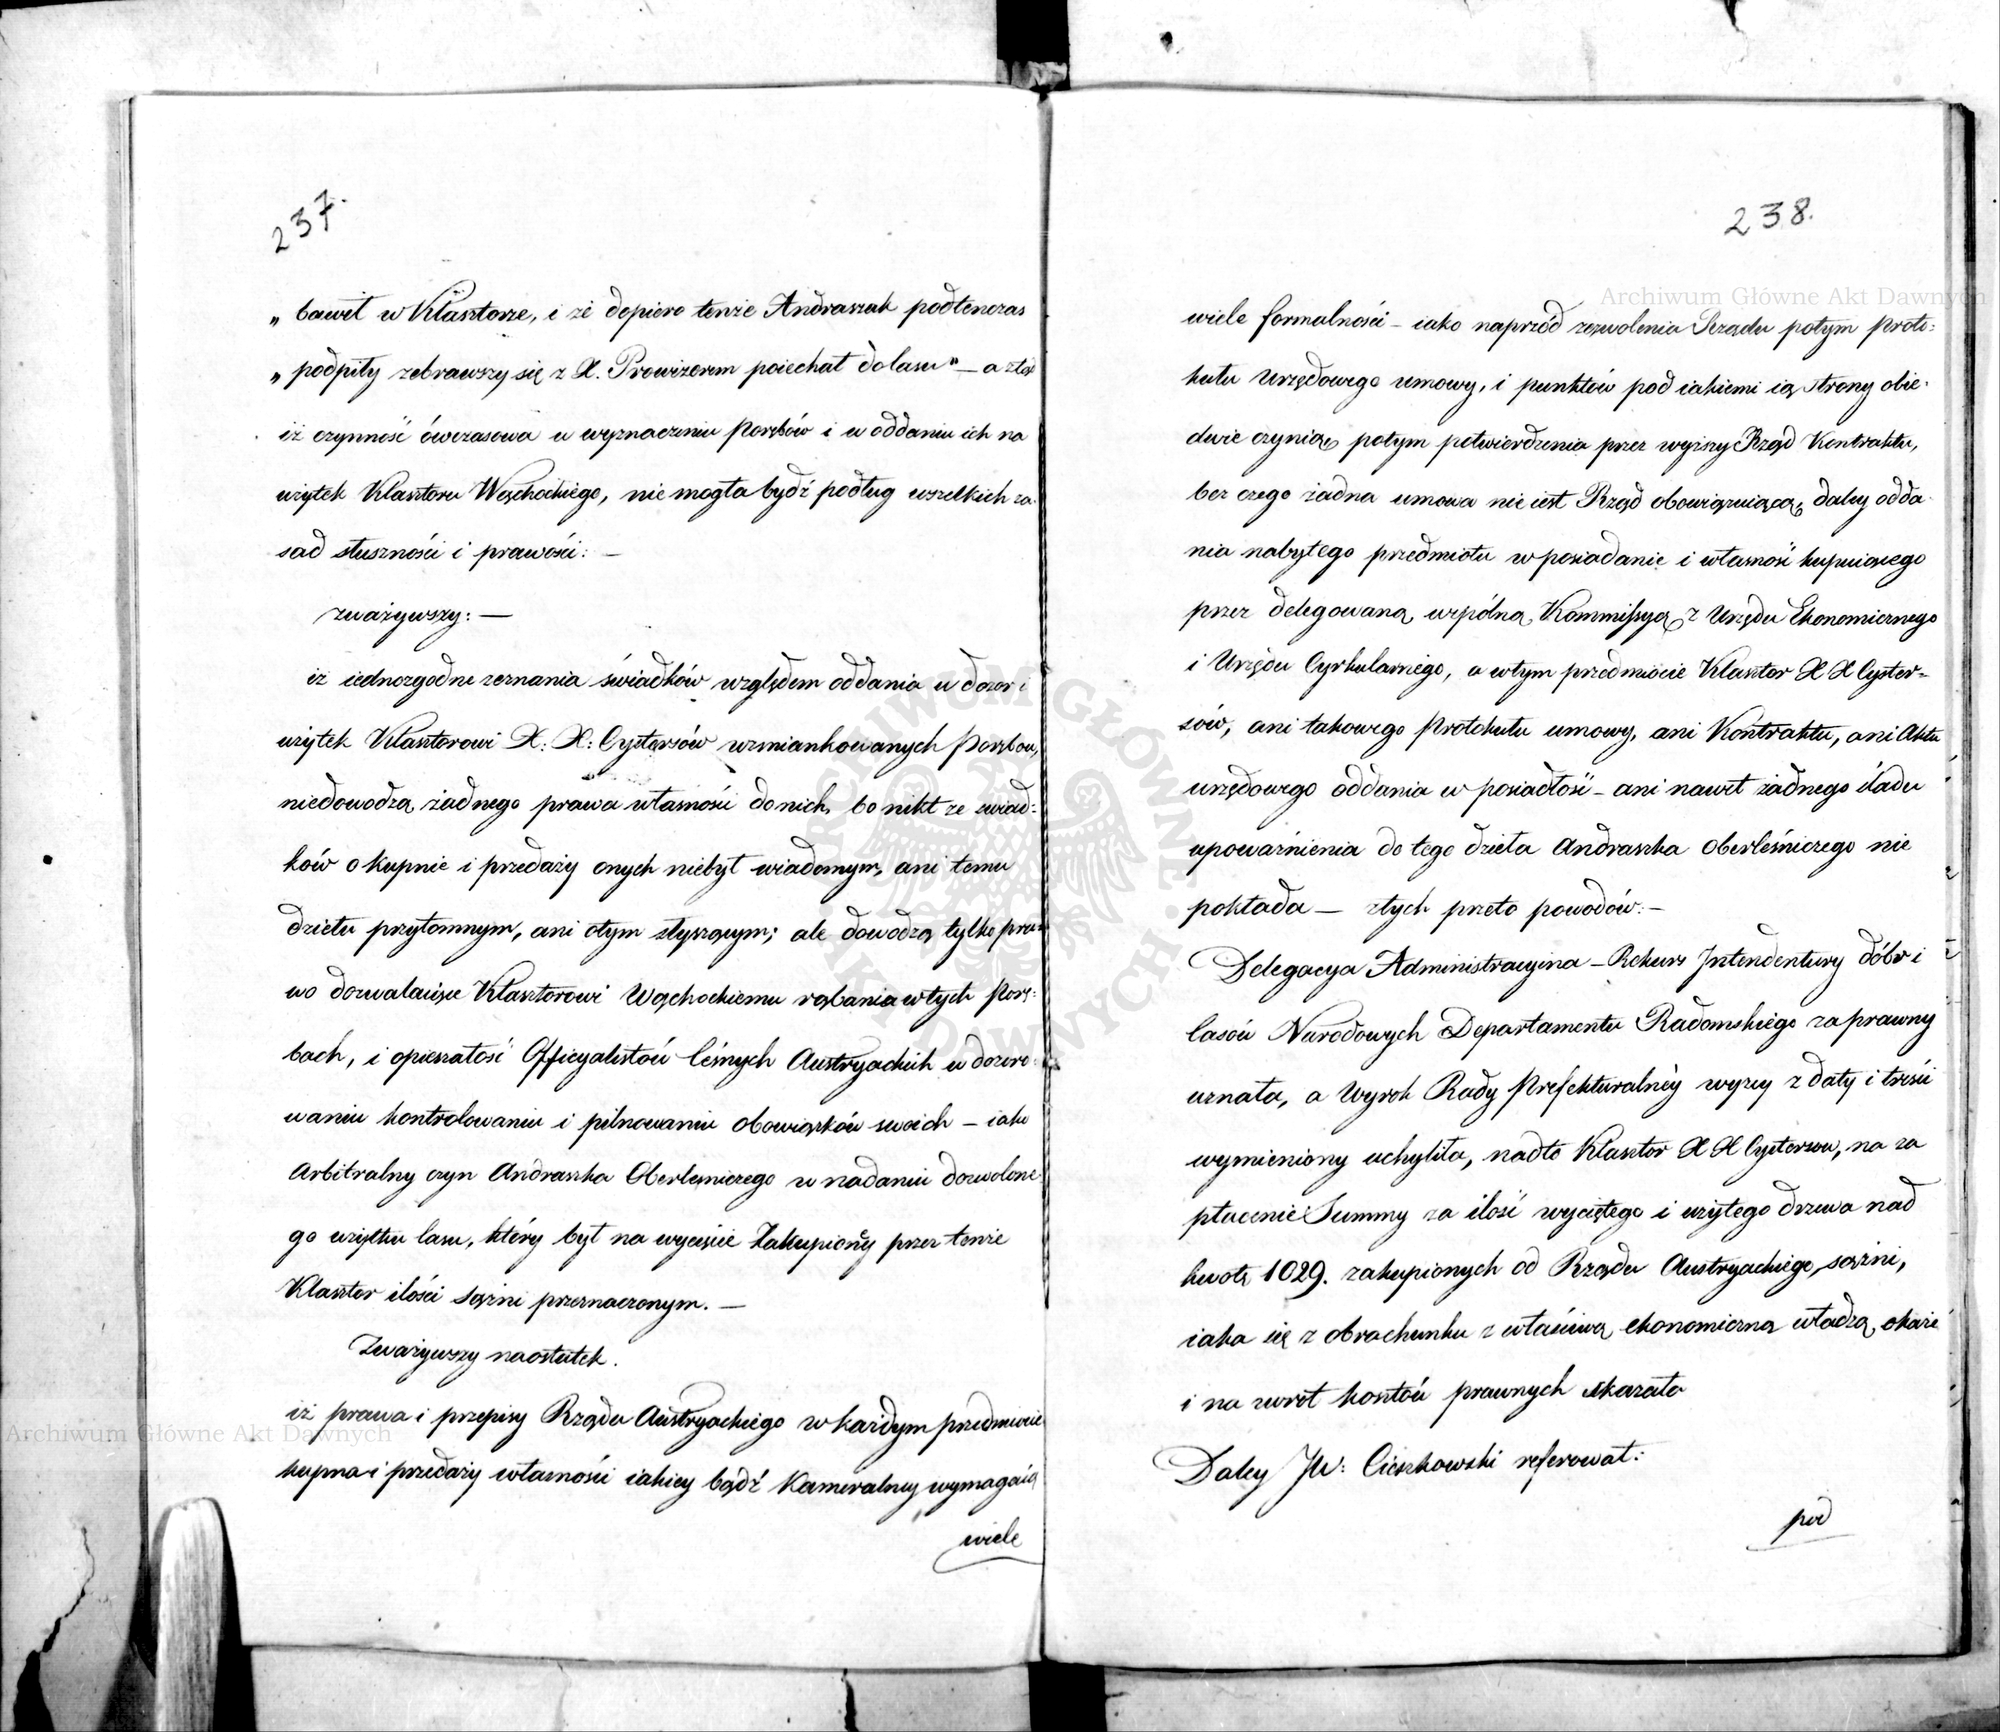 237.
„ bawił w Klasztorze, i że dopiero tenże Andraszak podtenczas
„ podpiły zebrawszy się z X. Prowizorem poiechał do lasu" — a ztąd
iż czynność ówczasowa w wyznaczeniu Porębów i w oddaniu ich na
użytek Klasztoru Wąchockiego, nie mogła bydź podług wszelkich za-
sad słuszności i prawości: —
zważywszy: —
iż iednozgodne zeznania świadków względem oddania w dozor i
użytek Klasztorowi X: X: Cystersów wzmiankowanych Porębów,
niedowodzą żadnego prawa własności do nich, bo nikt ze świad:
ków o kupnie i przedaży onych niebył wiadomym, ani temu
dziełu przytomnym, ani otym słyszącym; ale dowodzą tylko pra-
wo dozwalaiące Klasztorowi Wąchockiemu rąbania w tych Porę:
bach, i opieszałość Officyalistów leśnych Austryackich w dozoro-
waniu kontrolowaniu i pilnowaniu obowiązków swoich — iako
Arbitralny czyn Andraszka Oberleśniczego w nadaniu dozwolone-
go użytku lasu, który był na wycięcie zakupioney przez tenże
Klasztor ilości sążni przeznaczonym. —
Zważywszy naostatek.
iż prawa i przepisy Rządu Austryackiego w każdym przedmiocie
kupna i przedaży własności iakiey bądź Kameralney wymagaią
wiele
238.
wiele formalności – iako naprzód zezwolenia Rządu potym Proto:
kułu Urzędowego umowy, i punktów pod iakiemi ią strony obie-
dwie czynią, potym potwierdzenia przez wyższy Rząd Kontraktu,
bez czego żadna umowa nie iest Rząd obowiązuiącą, daley odda-
nia nabytego przedmiotu w posiadanie i własność kupuiącego
przez delegowaną wspólną Kommissyą z Urzędu Ekonomicznego
i Urzędu Cyrkularnego, a w tym przedmiocie Klasztor X X Cyster=
sów, ani takowego Protokułu umowy, ani Kontraktu, ani Aktu
urzędowego oddania w posiadłość – ani nawet żadnego śladu
upoważnienia do tego dzieła Andraszka Oberleśniczego nie
pokłada — z tych przeto powodów: —
Delegacya Administracyina – Rekurs Intendentury dóbr i
lasów Narodowych Departamentu Radomskiego za prawny
uznała, a Wyrok Rady Prefekturalnéy wyżey z daty i treści
wymieniony uchyliła, nadto Klasztor X X Cystersów, na za
płacenie Summy za ilość wyciętego i użytego drzewa nad
kwotę 1029. zakupionych od Rządu Austryackiego, sążni,
iaka się z obrachunku z właściwą ekonomiczną władzą okaże
i na zwrot kosztów prawnych skazała
Daley JW: Cieszkowski referował:
pod
Archiwum Główne Akt Dawnych
Archiwum Główne Akt Dawnych
ARCHIWUM GŁÓWNE AKT DAWNYCH